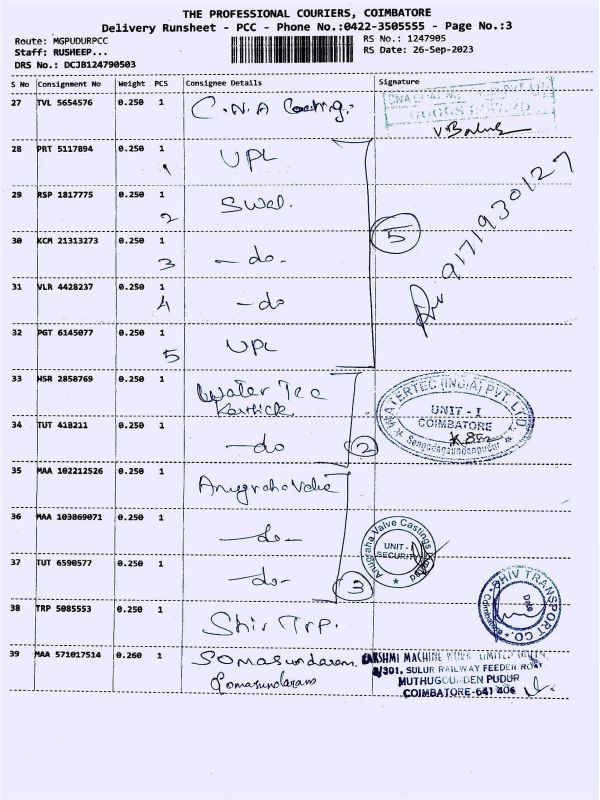 THE PROFESSIONAL COURIERS, COIMBATORE
Delivery Runsheet - PCC - Phone No.:0422-3505555 - Page No.:3
Route: MGPUDURPCC
RS No.: 1247905
Staff: RUSHEEP...
RS Date: 26-Sep-2023
DRS No.: DCJB124790503
S No Consignment No Weight PCS Consignee Details Signature
27 TVL 5654576 0.250 1 C.N.A Coating.
28 PRT 5117894 0.250 1 UPL
1
29 RSP 1817775 0.250 1 Swal.
2
5
9171930127
30 KCM 21313273 0.250 1 -do-
3
31 VLR 4428237 0.250 1 -do
4
32 PGT 6145077 0.250 1 UPL
5
33 HSR 2858769 0.250 1 Water Tec
Karthick
WATERTEC (INDIA) PVT. LTD.
UNIT - I
COIMBATORE
34 TUT 418211 0.250 1 -do
2
35 MAA 102212526 0.250 1 Anugraha Valve
36 MAA 103869071 0.250 1 -do-
Anugraha Valve Castings
UNIT -
SECURITY
37 TUT 6590577 0.250 1 -do-
3
38 TRP 5085553 0.250 1 Shiv Trp.
SHIV TRANSPORT CO.
Coimbatore
Date
39 MAA 571017514 0.260 1 Somasundaram
Somasundaram
LAKSHMI MACHINE WORKS LIMITED
SULUR RAILWAY FEEDER ROAD
MUTHUGOUNDEN PUDUR
COIMBATORE-641 406